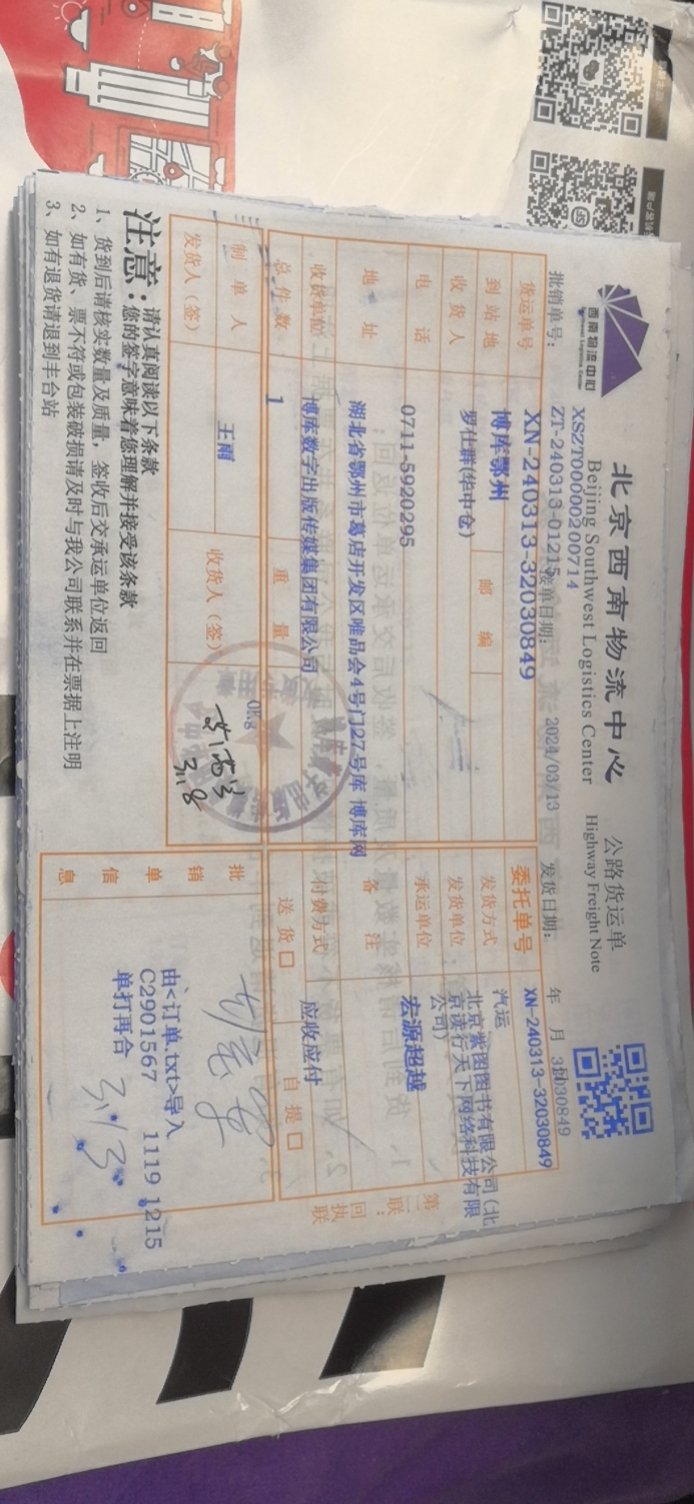 西南物流中心
Southwest Logistics Center
北京西南物流中心 公路货运单
Beijing Southwest Logistics Center Highway Freight Note
XSZT00000200714
批销单号: ZT-240313-01215 接单日期: 2024/03/13 发货日期: 年 月 日
货运单号 XN-240313-32030849 委托单号 XN-240313-32030849
到站地 博库鄂州 邮编 发货方式 汽运
收货人 罗仕群(华中仓) 发货单位 北京紫图图书有限公司(北京读行天下网络科技有限公司)
电话 0711-5920295 承运单位 宏源超越
地址 湖北省鄂州市葛店开发区唯品会4号门27号库 博库网 备注
收货单位 博库数字出版传媒集团有限公司 付费方式 应收应付
总件数 1 重量 0kg 送货□ 自提□
制单人 王雨 收货人(签)
3.18
发货人(签)
批销单信息 由<订单.txt>导入
C2901567 1119 1215
单打再合
3.13
第二联:回执联
注意:请认真阅读以下条款
您的签字意味着您理解并接受该条款
1、货到后请核实数量及质量,签收后交承运单位返回
2、如有货、票不符或包装破损请及时与我公司联系并在票据上注明
3、如有退货请退到丰台站